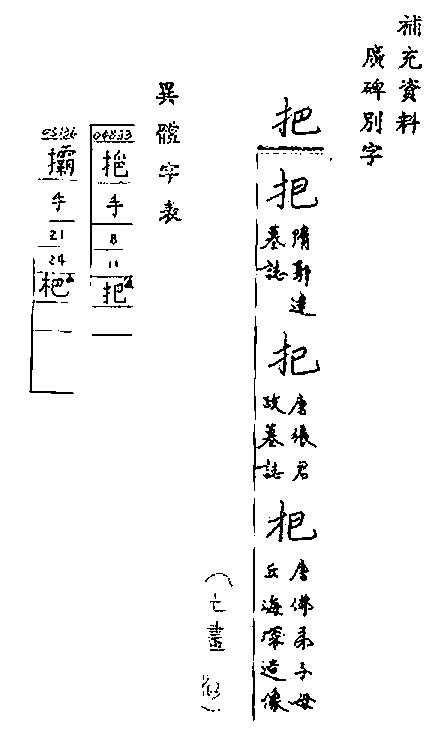 補充資料
廣碑別字
把
把
隋郭達
墓誌
把
唐張君
政墓誌
杷
唐佛弟子母
丘海深造像
(七畫
異體字表
04853
挹
手
8
11
把
欛
手
21
24
杷